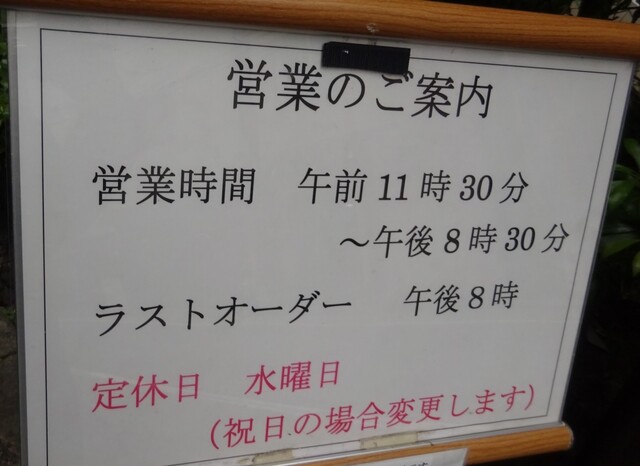 営業のご案内
営業時間 午前11時30分
～午後8時30分
ラストオーダー 午後8時
定休日 水曜日
(祝日の場合変更します)